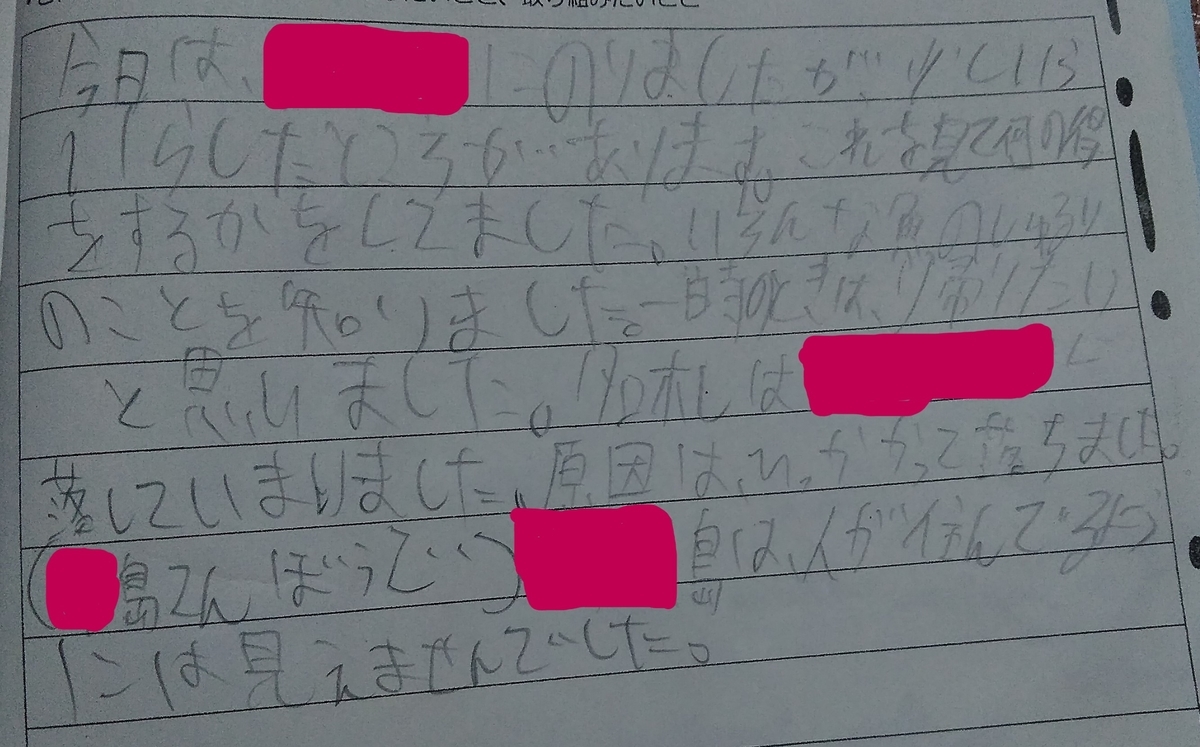 たいこと、取り組みたいこと
今日は、にのりましたが、少しいら
いらしたところが…あります。これを見て何の得
をするかをしてました。いろんな魚のしゅるい
のことを知りました。一時のときは、帰りたい
と思いました。名札は に
落していまいりました。原因は、ひっかかって落ちました。
(島てんぼうで) 島は、人が住んでるよう
には見えませんでした。